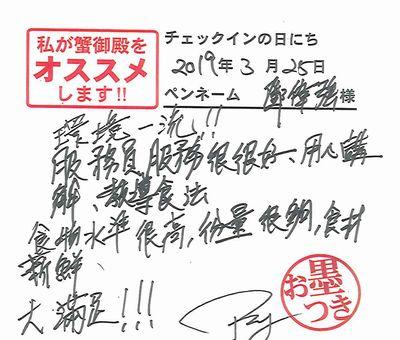 私が蟹御殿を
オススメ
します!!
チェックインの日にち
2019年3月25日
ペンネーム 鄭偉強様
環境一流!!
服務員服務很很好、用心講
解、教導食法
食物水準很高,份量很夠,食材
新鮮、
大滿足!!!
お墨
つき